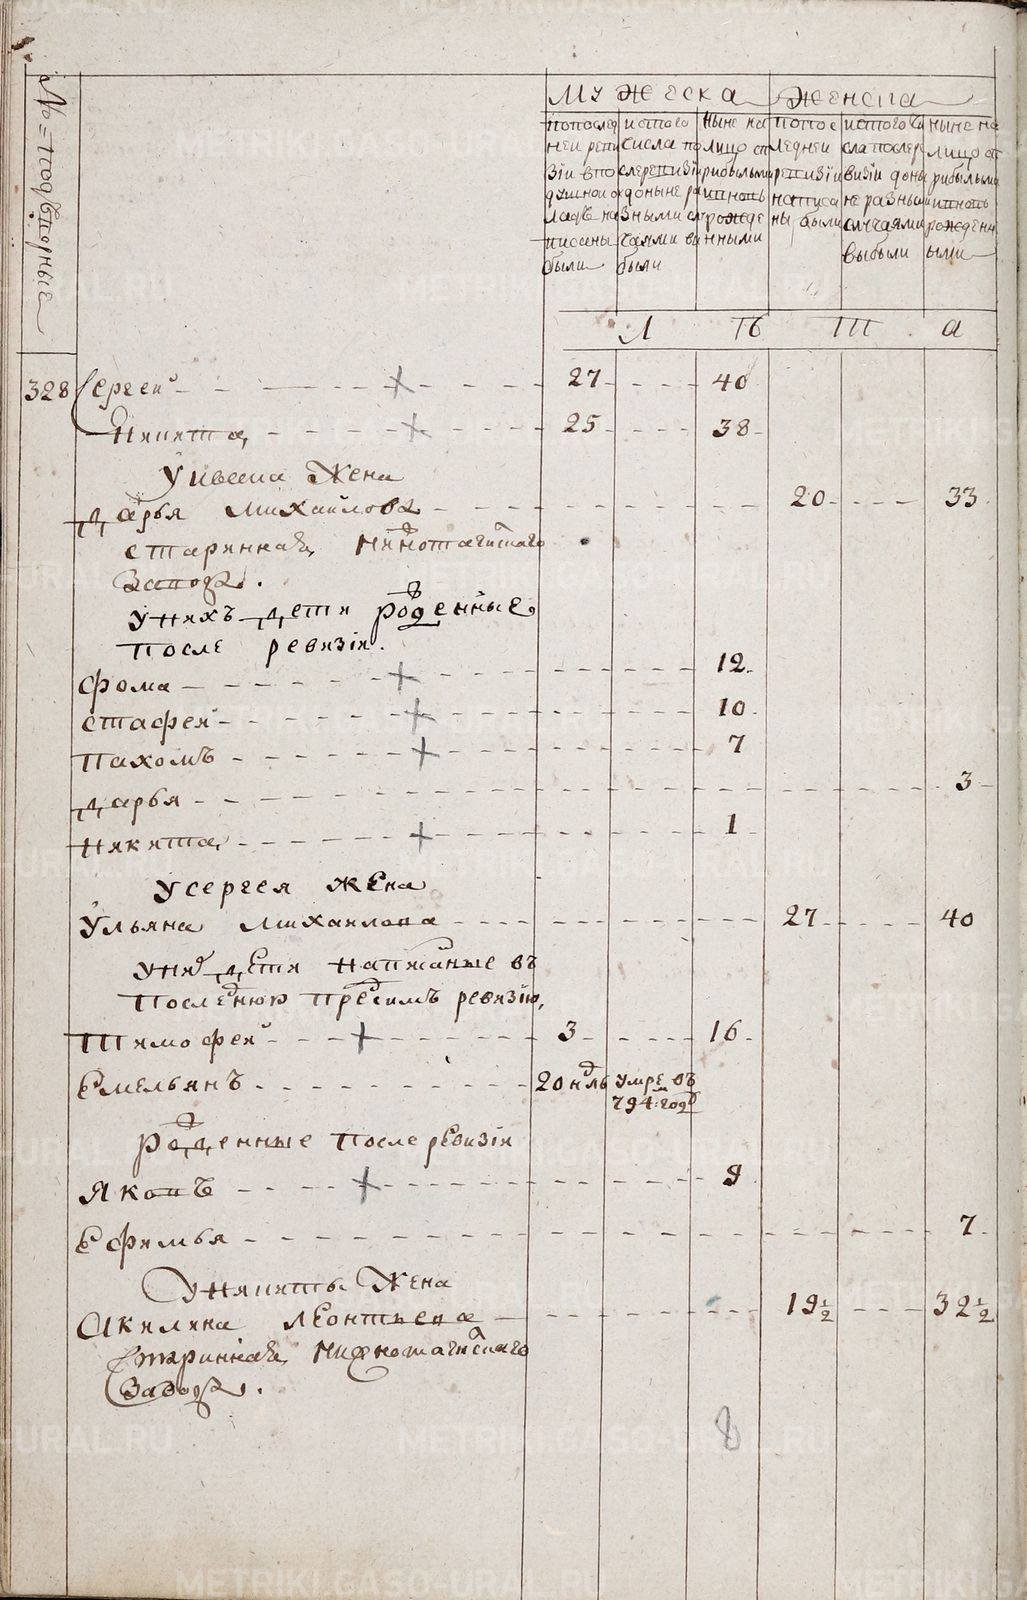 № подворные
мужеска женска
попослед
ней реви
зіи впо
душном о
ладе на
писаны
были
истого
числа по
слеревизіи
доныне ра
зными слу
чаями вы
были
ныне на
лицо сп
рибылыми
ивновь
рожде
нными
попос
ледней
ревизіи
написа
ны были
истого чи
сла послере
визіи доны
не разными
случаями
выбыли
ныне на
лицо сп
рибылыми
ивновь
рожденн
ыми
Л Ѣ Т а
328 Сергей 27 40
Никита 25 38
Уивана Жена
дарья Михайлова 20 33
старинная Нижнотагилскаго
Завода.
унихъ дети рожденные
после ревизіи.
фома 12
стафей 10
пахомъ 7
дарья 3
никита 1
усергея жена
Ульяна Михаилова 27 40
униx дети написанные въ
последнюю предсимъ ревизію,
Тимофей 3 16
Емельянъ 20 ндль умре въ
794: годȢ
рожденные после ревизіи
Яковъ 9
Ефимья 7
Уникиты Жена
Акилина леонтьева 19½ 32½
Старинная Нижнотагилскаго
Завода.
8
METRIKI.GASO-URAL.RU